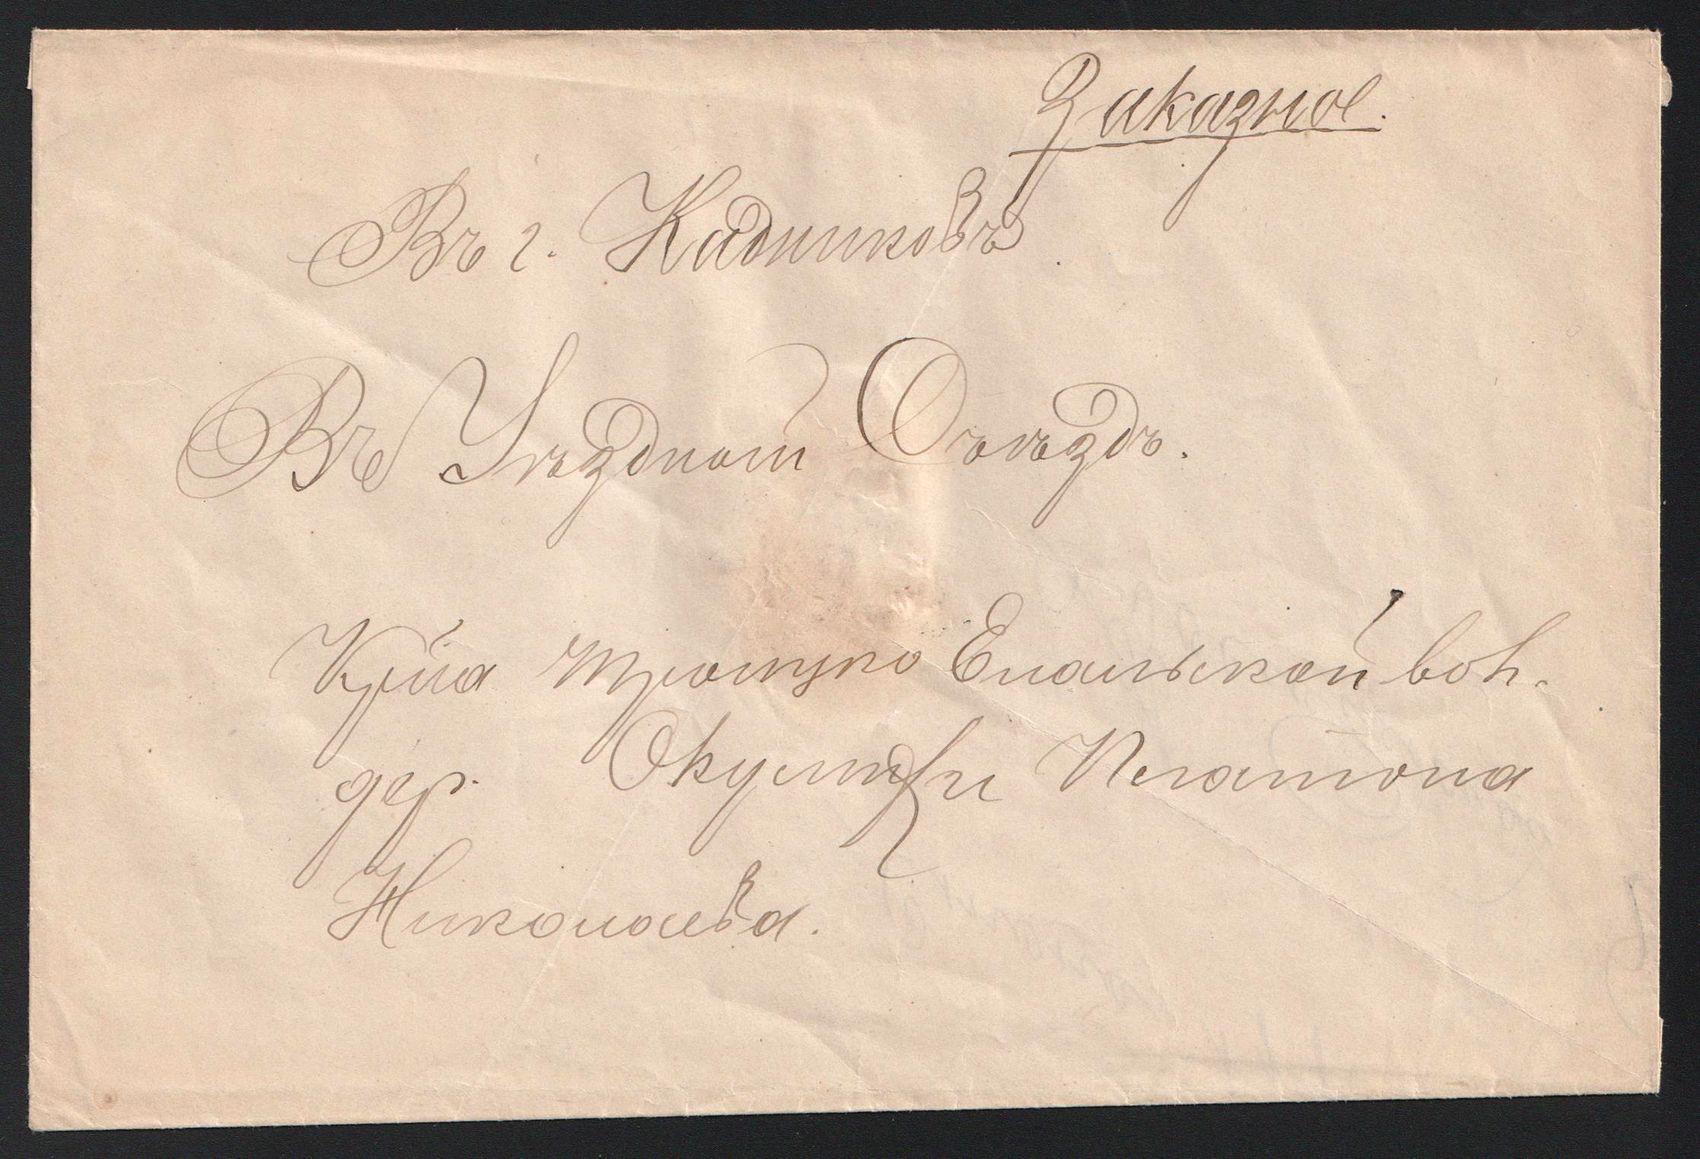 Заказное.
Въ г. Кадниковъ
Въ Уѣздный Съѣздъ.
Кр-на Троицко Енальской вол.
дер. Платона
Николаева.